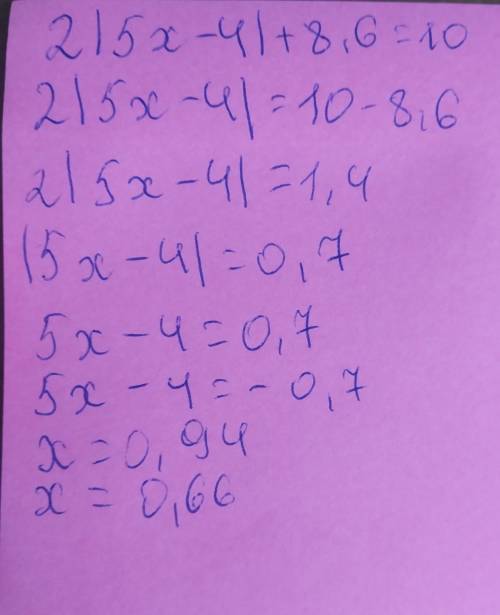 2|5x-4|+8,6=10
2|5x-4|=10-8,6
2|5x-4|=1,4
|5x-4|=0,7
5x-4=0,7
5x-4=-0,7
x=0,94
x=0,66